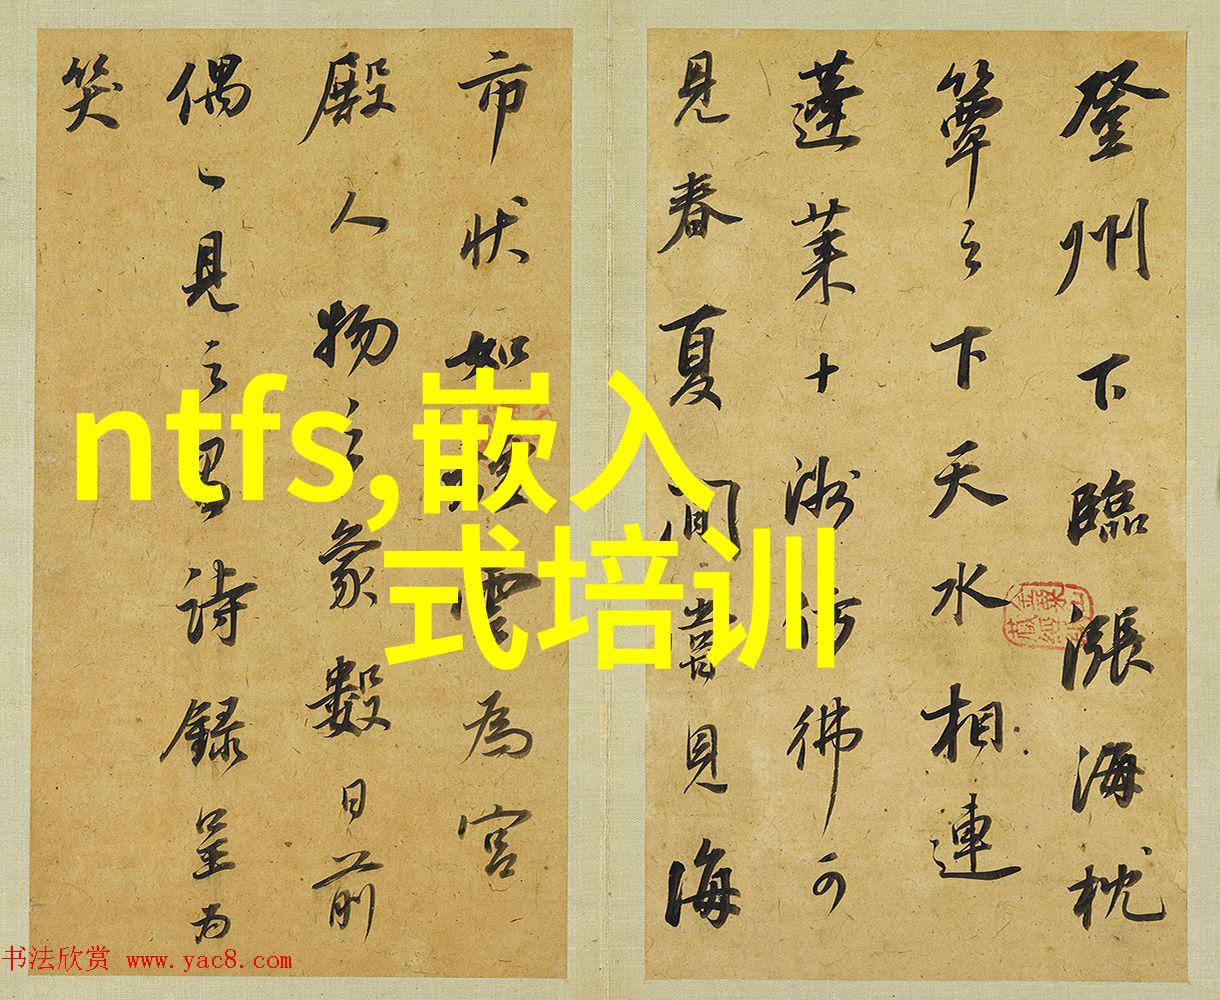 登州下臨漲海枕
簟之下天水相連
蓬莱十洲彷彿可
見春夏間嘗見海
市状如雲為宮
殿人物之象數日前
偶一見之詩録呈為
笑
ntfs,嵌入
式培训
书法欣赏 www.yac8.com